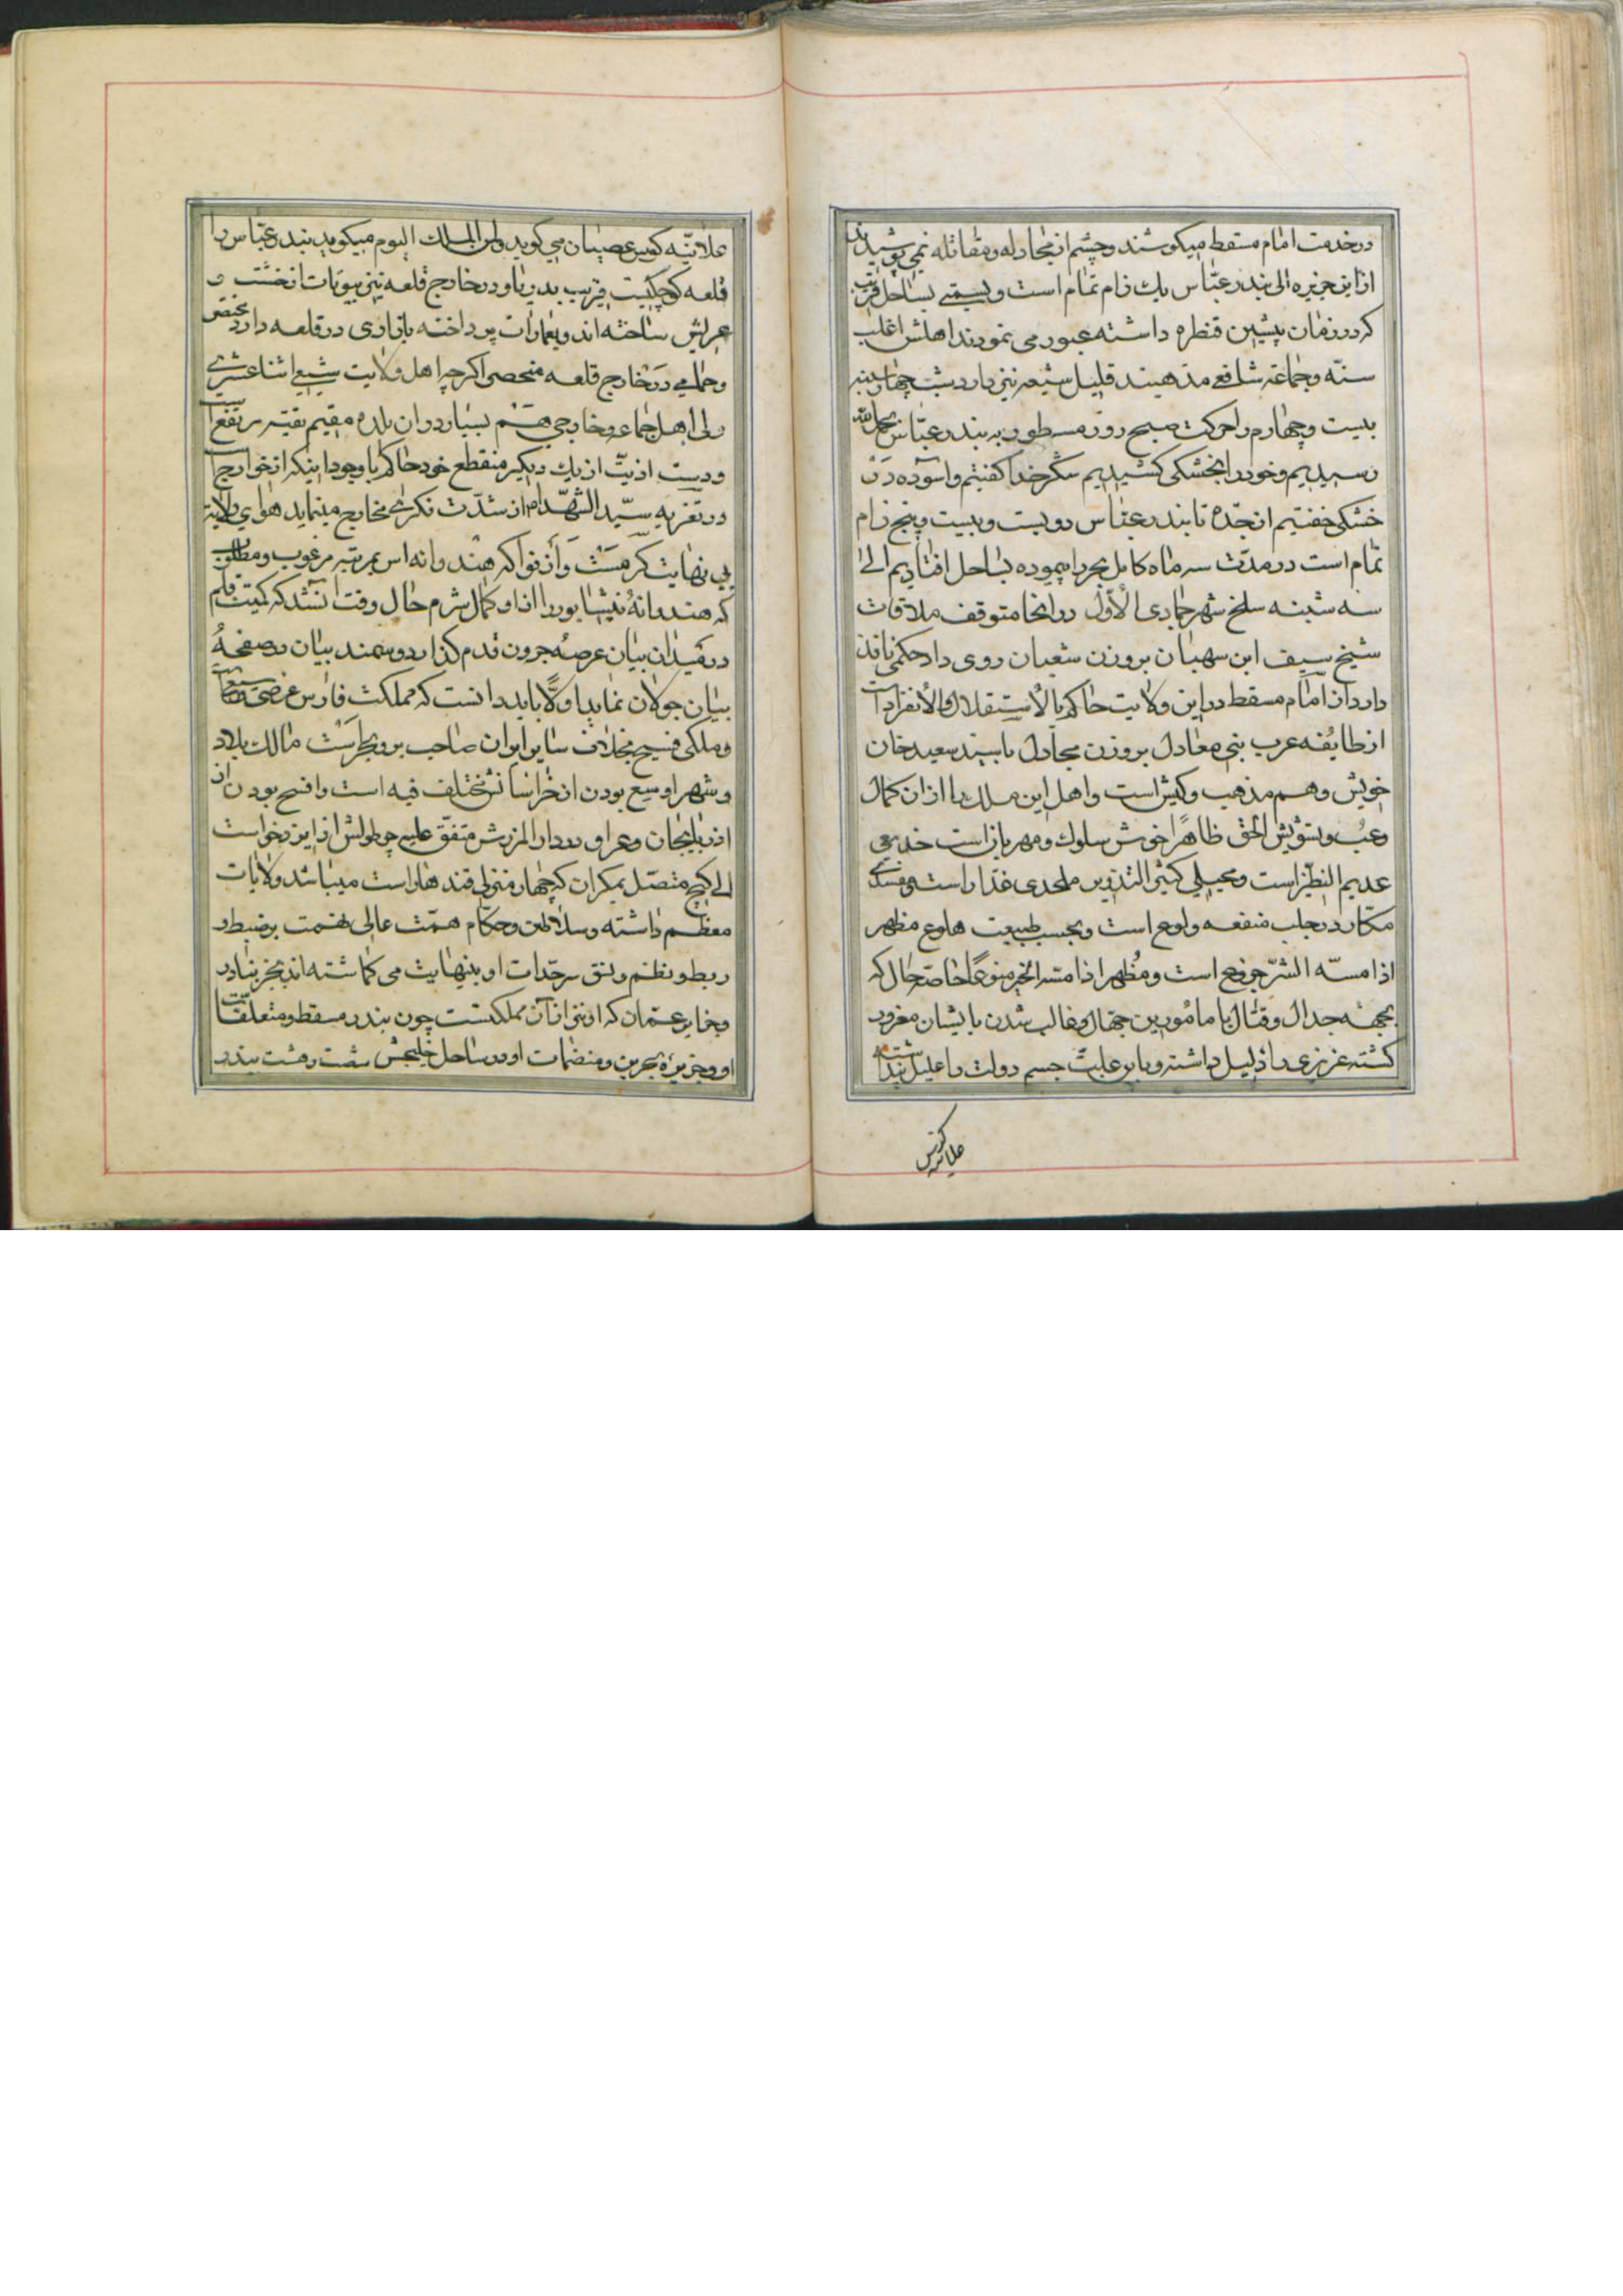 درخدمت امام مسقط میکوشند وچشم از مجادله ومقاتله نمی پوشیدند
ازاین جزیره الی بندر عباس یك زام تمام است و بساحل قریب
که درزمان پیشین قنطره داشته عبور می نمودند اهلش اغلب
سنه وجماعته شافعی مذهبند قلیل شیعه نیز دارد شب چهارشنبه
بیست وچهارم راحرکت صبح روز مسطور به بندر عباس بحمدالله
رسیدیم وخودرا بخشکی کشیدیم شکر خدا کفتیم واسوده در
خشکی خفتیم از جده تا بندر عباس دویست وبیست وپنج زام
تمام است درمدت سه ماه کامل بحر را پیموده بساحل افتادیم الی
سه شنبه سلخ شهر جمادی الاول درانجا متوقف ملاقات
شیخ سیف ابن سهبان بروزن شعبان روی داد حکمی نافذ
دارد از امام مسقط دراین ولایت حاکم بالاستقلال والانفراد است
ازطایفه عرب بنی معادل بروزن مجادل باسید سعیدخان
خویش وهم مذهب وکیش است واهل این ملك را ازان کمال
رعب وتشویش الحق ظاهرا خوش سلوك ومهربان است
عدیم النظیر است ومحیلی کثیر التذویر ملحدی غدار است
مکار درجلب منفعه ولوع است وبحسب طبیعت هلوع مظهر
اذا مسه الشر جزوع است ومظهر اذا مسه الخیر منوعا خاصه حال که
بجهته جدال وقتال با مامورین جهال وغالب شدن بایشان مغرور
کشته عزیزی را ذلیل داشته وباین علت جسم دولت را علیل
علانیه کوس عصیان می کوبد ولمن الملك الیوم میکوید بندر عباس را
قلعه کوچکیست قریب بدریا ودرخارج قلعه نیز بیوتات ازخشت و
عریش ساخته اند وبعمارات پرداخته بازاری درقلعه دارد مختص
وحمامی درخارج قلعه منحصر اکرچه اهل ولایت شیعی اثناعشری
ولی اهل جماعه وخارجی هم بسیار دران بلده مقیم تقیه مرتفع است
ودست اذیت ازیك دیکر منقطع خود حاکم باوجود اینکه ازخوارج است
درتعزیه سید الشهدا ازشدت مخارج مینماید هوای ولایت
بی نهایت کرمست وازفواکه هندوانه اش بمرتبه مرغوب ومطلوب
که هندوانه نیشابور را ازاو کمال شرم حال وقت انشد که کمیت قلم
درمیدان بیان عرصه جرون قدم کذارد وسمند بیان درصفحه
بیان جولان نماید اولا باید دانست که مملکت فارس
وملکی فسیح بخلاف سایر ایران صاحب بر وبحر است مالك بلاد
وشهر اوسیع بودن از خراسانش مختلف فیه است وافسح بودن از
اذربایجان وعراق ودارالمرزش متفق علیه چه طولش از
الی کیج متصل بمکران که چهار منزلی قندهار است میباشد ولایات
معظم داشته وسلاطین وحکام همت عالی نهمت برضبط و
ربط ونظم ونسق سرحدات او بینهایت می کماشته اند بجز بنادر
وجزایر عمان که اونیز ازآن مملکتست چون بندر مسقط ومتعلقات
او وجزیره بحرین ومنضمات او درساحل خلیجش شصت وهشت بندر